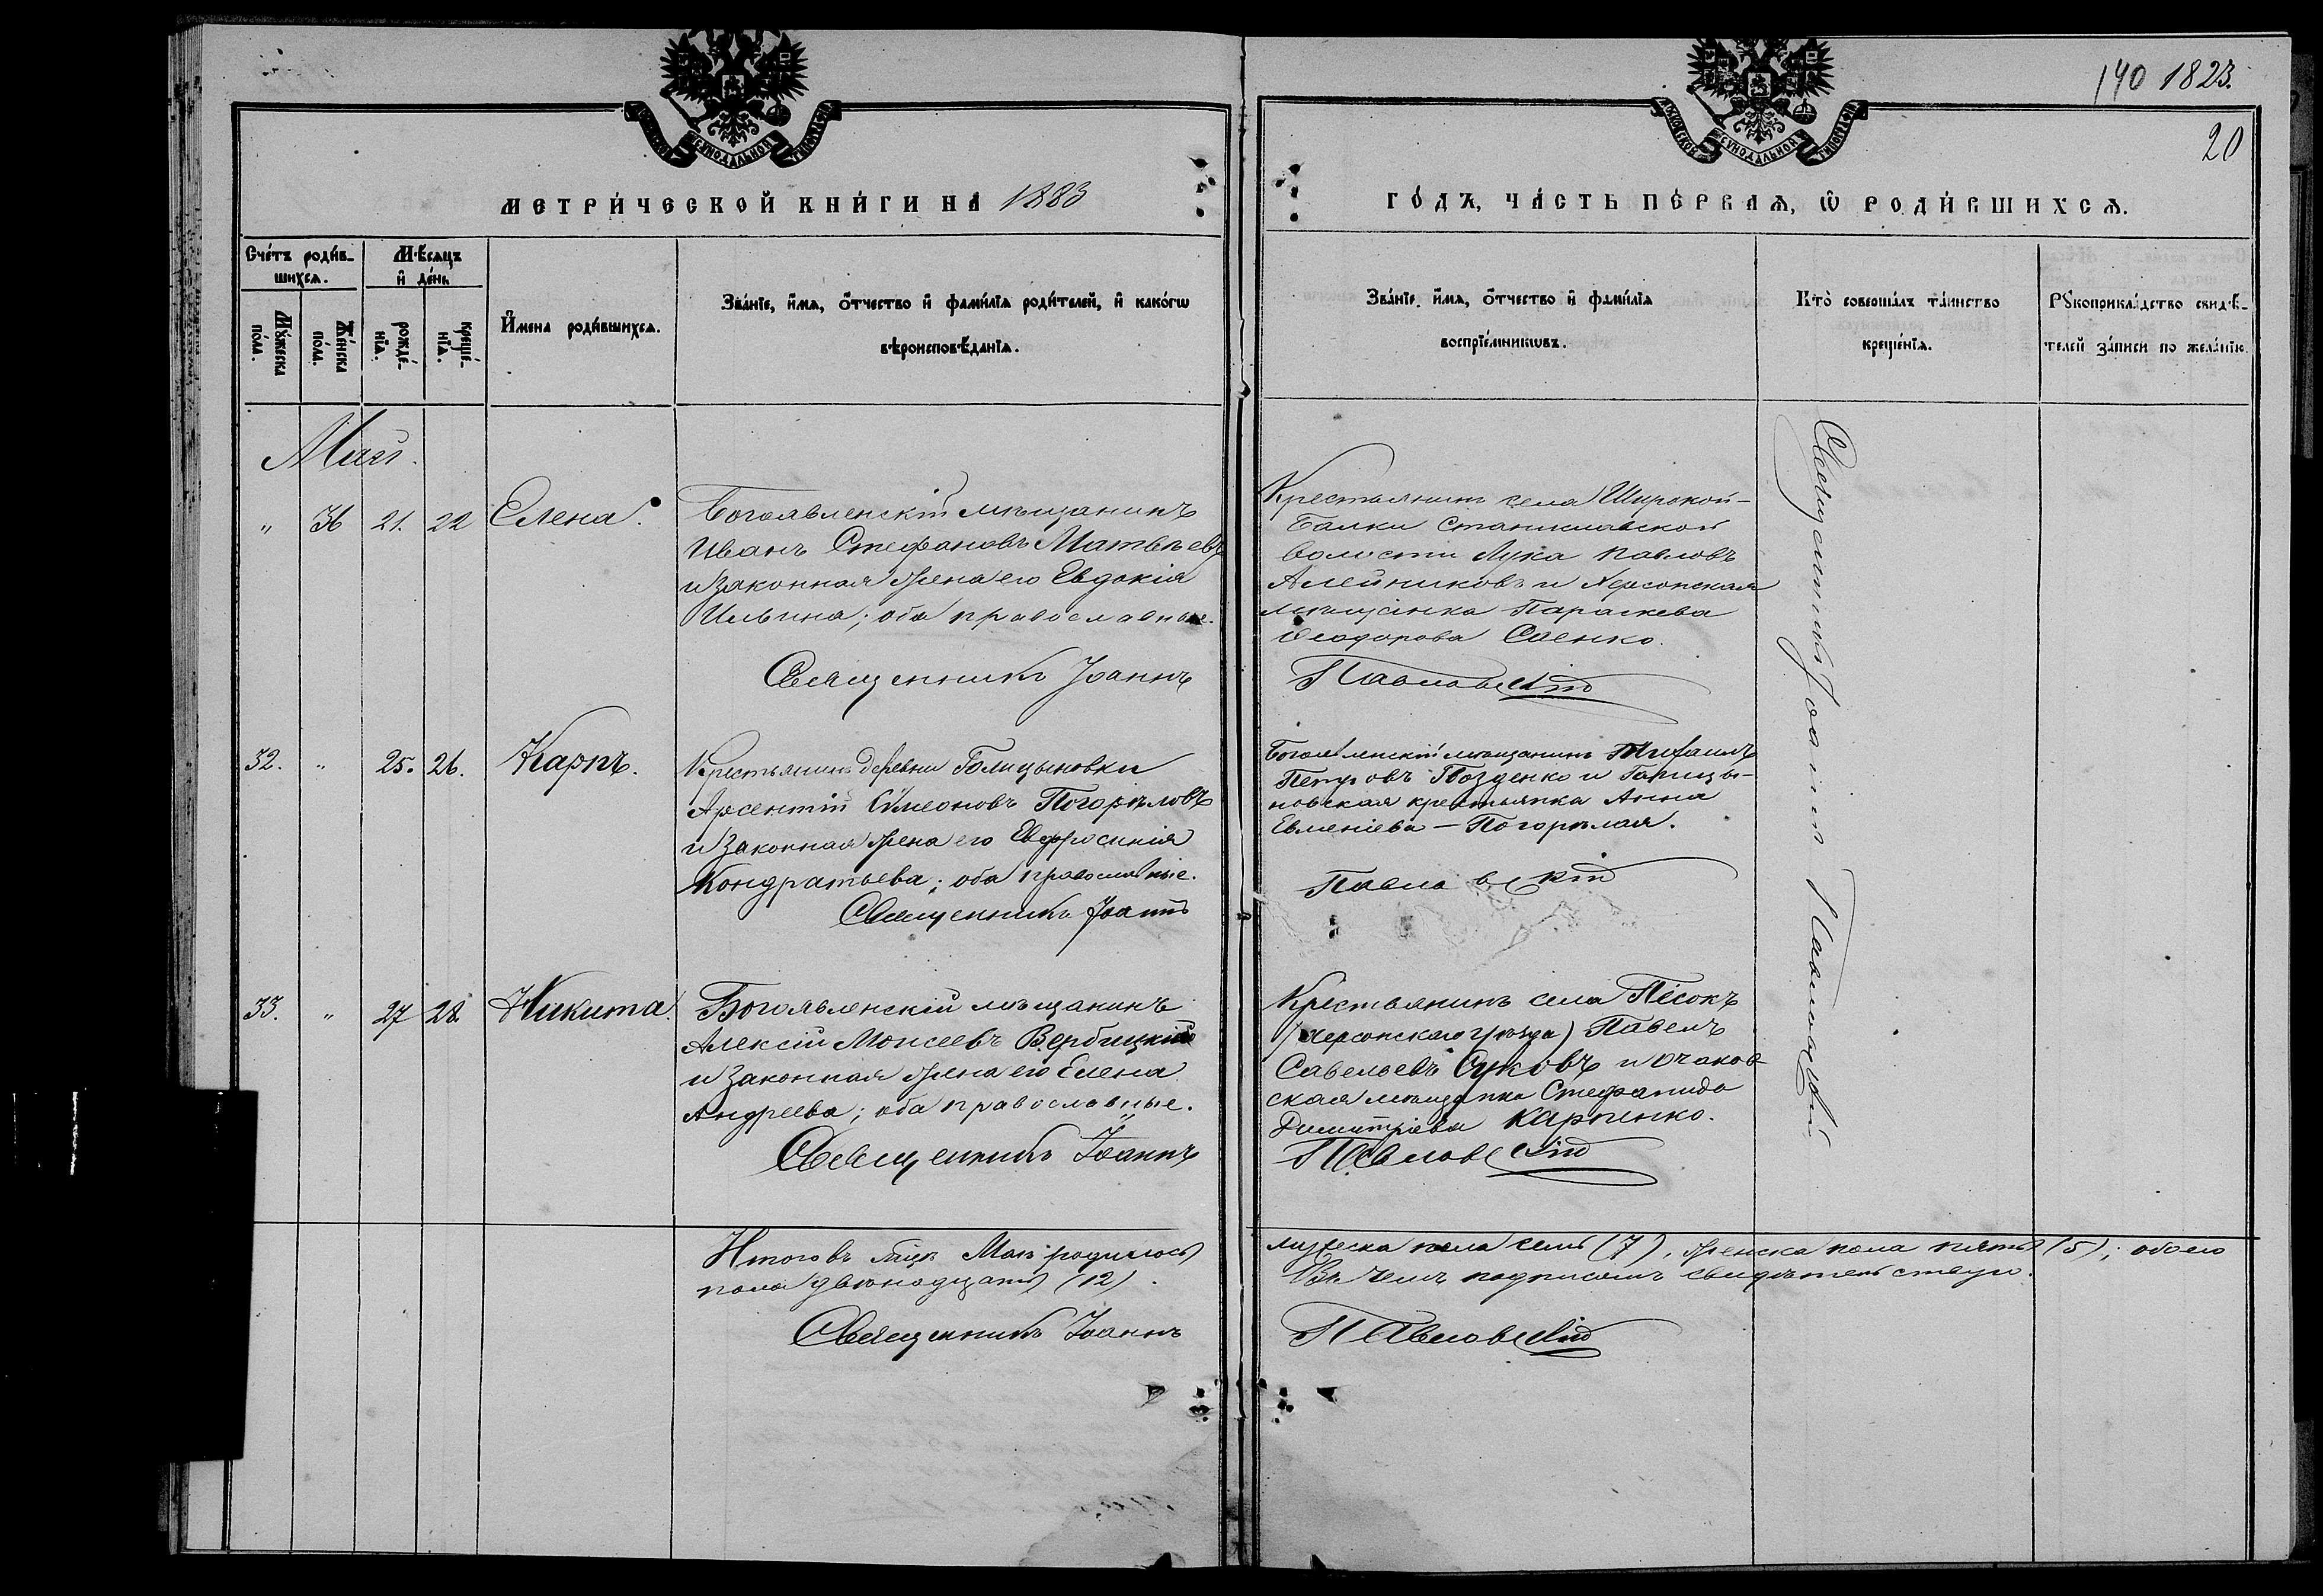 140 1823.
20
МЕТРИ́ЧЕСКОЙ КНИ́ГИ НА̀ 1883
ГО́ДЪ, ЧА́СТЬ ПЕ́РВАѦ, Ѡ РОДИ́ВШИХСѦ.
Сче́тъ роди́в-
шихсѧ.
Мꙋ́жеска по́ла.
Же́нска по́ла.
Мѣ́сѧцъ
и҆ де́нь
рожде́-
нїѧ.
креще́-
нїѧ.
И҆мена роди́вшихсѧ.
Зва́нїе, и҆́мѧ, ѻ҆́тчество и҆ фами́лїѧ роди́телей, и҆ како́гѡ
вѣроисповѣ́данїѧ.
Зва́нїе, и҆́мѧ, ѻ҆́тчество и҆ фами́лїѧ
воспрїе́мникѡвъ.
Кто̀ соверша́лъ та́инство
креще́нїѧ.
Рꙋкоприкла́дство свидѣ́-
телей за́писи по жела́нїю.
Май.
" 36 21. 22 Елена.
Богоявленскій мѣщанинъ
Иванъ Стефановъ Матвѣевъ
и законная жена его Евдокія
Ильина; оба православные.
Священникъ Іоаннъ
Крестьянинъ села Широкой-
Балки Станиславской
волости Лука Павловъ
Алейниковъ и Херсонская
мѣщанка Параскева
Ѳеодорова Саенко.
Павловскій
Священникъ Іоаннъ Павловскій
32. " 25. 26. Карпъ.
Крестьянинъ деревни Голицыновки
Арсентій Сѵмеоновъ Погорѣловъ
и законная жена его Евфросинія
Кондратьева; оба православные.
Священникъ Іоаннъ
Богоявленскій мѣщанинъ Михаилъ
Петровъ Гвозденко и Голицы-
новская крестьянка Анна
Евменіева - Погорѣлая.
Павловскій
33. " 27 28. Никита.
Богоявленскій мѣщанинъ
Алексій Моисеевъ Вербицкій
и законная жена его Елена
Андреева; оба православные.
Священникъ Іоаннъ
Крестьянинъ села Песокъ
(Херсонскаго уѣзда) Павелъ
Савельевъ Суковъ и Очаков-
ская мѣщанка Стефанида
Димитріева Карпенко.
Павловскій
Итого въ мцѣ Маѣ родилось
мужеска пола семь (7), женска пола пять (5); обоего
пола двѣнадцать (12).
Въ чемъ подписомъ свидѣтельствую.
Священникъ Іоаннъ
Павловскій